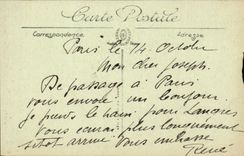 Carte Postale
Correspondance Adresse
Paris le 14 Octobre
Mon cher Joseph.
De passage à Paris
vous envoie un bonjour.
je prends le train pour Langres
vous écrirai plus longuement
sitot arrivé. Vous embrasse
René